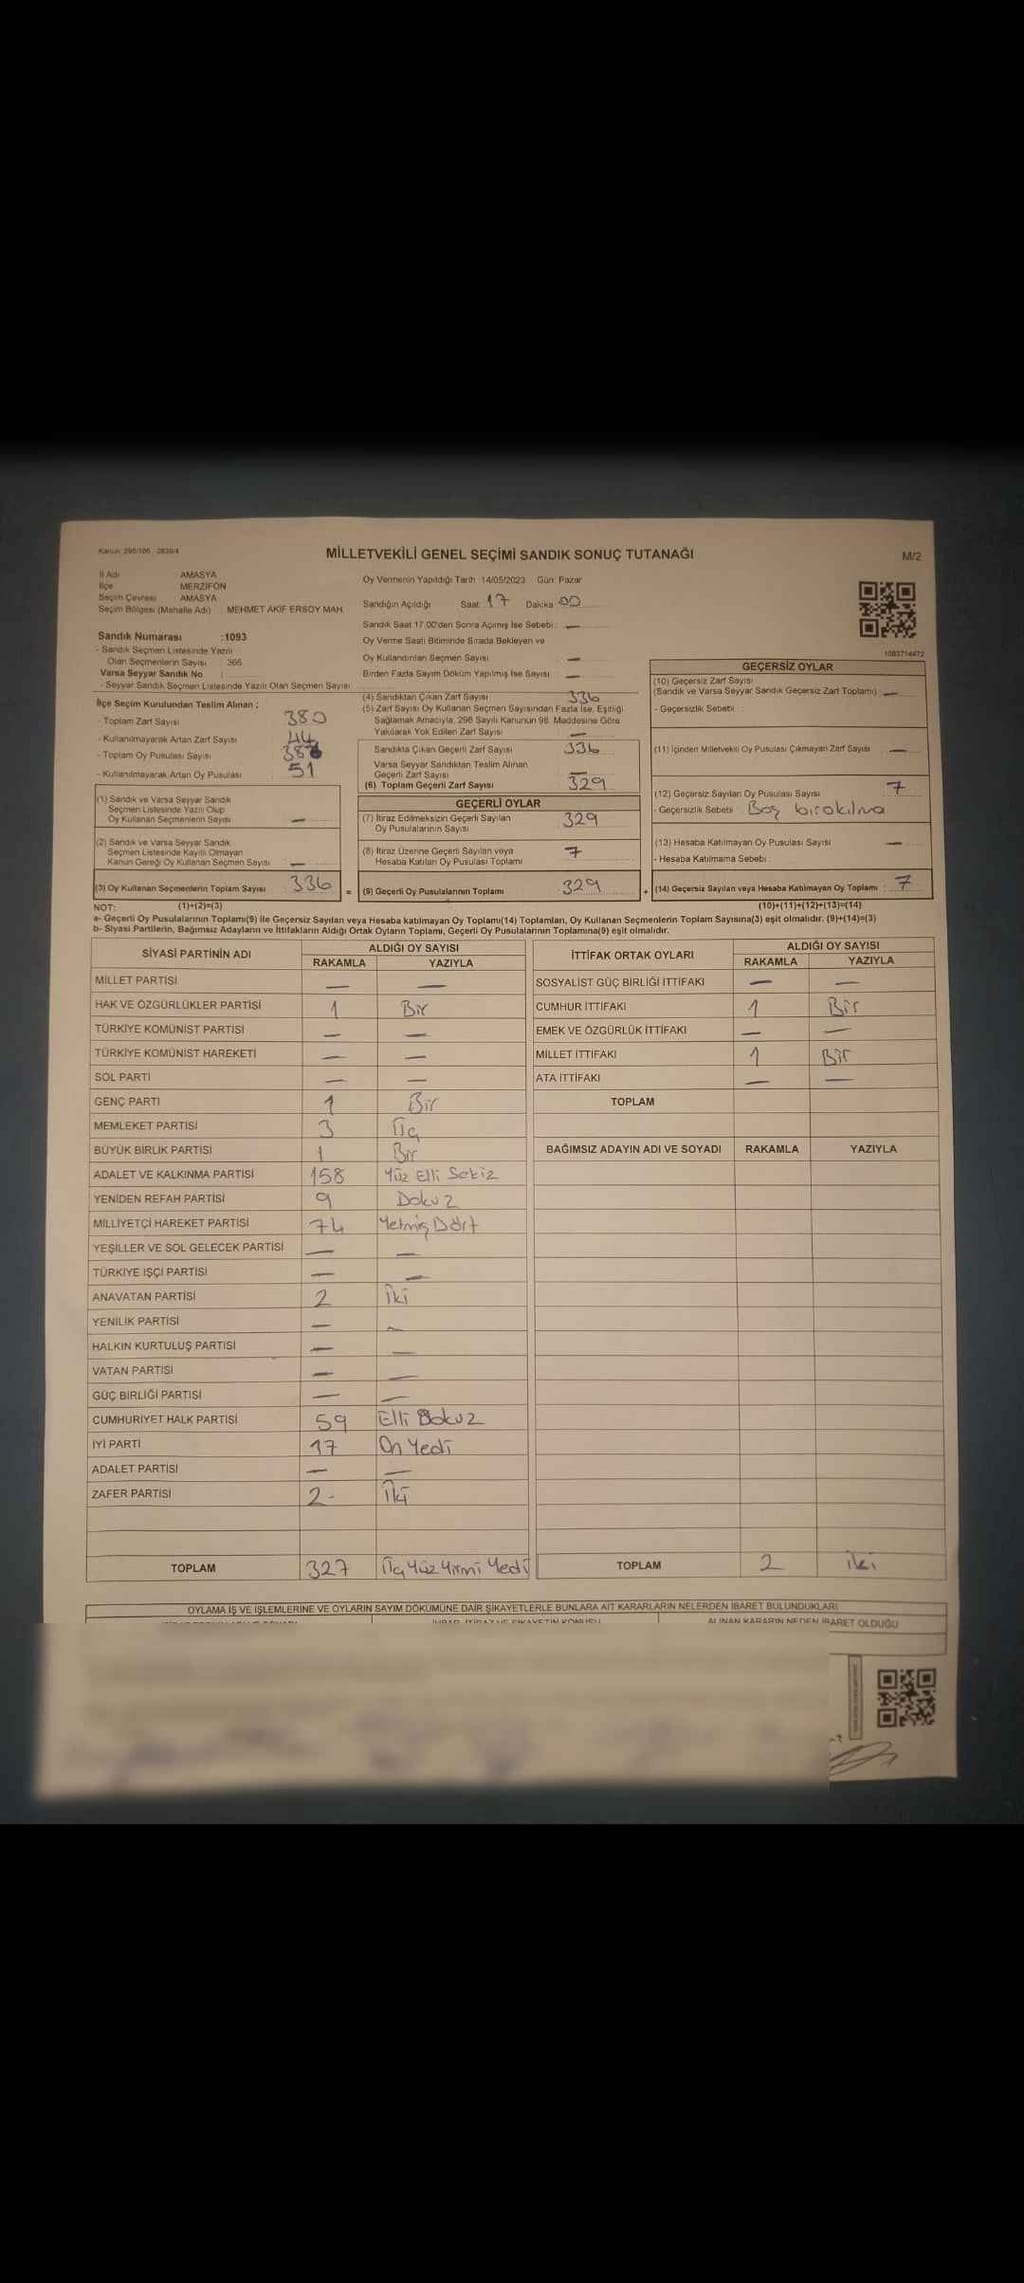 MİLLETVEKİLİ GENEL SEÇİMİ SANDIK SONUÇ TUTANAĞI
M/2
İl Adı AMASYA
İlçe MERZİFON
Seçim Çevresi : AMASYA
Seçim Bölgesi (Mahalle Adı) : MEHMET AKİF ERSOY MAH.
Oy Vermenin Yapıldığı Tarih 14/05/2023 Gün: Pazar
Sandığın Açıldığı Saat 17 Dakika 00
Sandık Saat 17.00'den Sonra Açılmış İse Sebebi : —
Oy Verme Saati Bitiminde Sırada Bekleyen ve
Oy Kullandırılan Seçmen Sayısı —
Birden Fazla Sayım Döküm Yapılmış İse Sayısı —
1083714472
Sandık Numarası :1093
- Sandık Seçmen Listesinde Yazılı
Olan Seçmenlerin Sayısı : 366
Varsa Seyyar Sandık No
- Seyyar Sandık Seçmen Listesinde Yazılı Olan Seçmen Sayısı
İlçe Seçim Kurulundan Teslim Alınan ;
- Toplam Zarf Sayısı 380
- Kullanılmayarak Artan Zarf Sayısı 44
- Toplam Oy Pusulası Sayısı
- Kullanılmayarak Artan Oy Pusulası 51
(1) Sandık ve Varsa Seyyar Sandık
Seçmen Listesinde Yazılı Olup
Oy Kullanan Seçmenlerin Sayısı —
(2) Sandık ve Varsa Seyyar Sandık
Seçmen Listesinde Kayıtlı Olmayan
Kanun Gereği Oy Kullanan Seçmen Sayısı —
(3) Oy Kullanan Seçmenlerin Toplam Sayısı 336
(4) Sandıktan Çıkan Zarf Sayısı 336
(5) Zarf Sayısı Oy Kullanan Seçmen Sayısından Fazla İse, Eşitliği
Sağlamak Amacıyla, 298 Sayılı Kanunun 98. Maddesine Göre
Yakılarak Yok Edilen Zarf Sayısı —
Sandıkta Çıkan Geçerli Zarf Sayısı 336
Varsa Seyyar Sandıktan Teslim Alınan
Geçerli Zarf Sayısı —
(6) Toplam Geçerli Zarf Sayısı 329
GEÇERLİ OYLAR
(7) İtiraz Edilmeksizin Geçerli Sayılan
Oy Pusulalarının Sayısı 329
(8) İtiraz Üzerine Geçerli Sayılan veya
Hesaba Katılan Oy Pusulası Toplamı 7
= (9) Geçerli Oy Pusulalarının Toplamı 329
GEÇERSİZ OYLAR
(10) Geçersiz Zarf Sayısı
(Sandık ve Varsa Seyyar Sandık Geçersiz Zarf Toplamı) : —
- Geçersizlik Sebebi :
(11) İçinden Milletvekili Oy Pusulası Çıkmayan Zarf Sayısı —
(12) Geçersiz Sayılan Oy Pusulası Sayısı : 7
- Geçersizlik Sebebi Boş bırakılma
(13) Hesaba Katılmayan Oy Pusulası Sayısı —
- Hesaba Katılmama Sebebi :
+ (14) Geçersiz Sayılan veya Hesaba Katılmayan Oy Toplamı : 7
NOT: (1)+(2)=(3) (10)+(11)+(12)+(13)=(14)
a- Geçerli Oy Pusulalarının Toplamı(9) ile Geçersiz Sayılan veya Hesaba katılmayan Oy Toplamı(14) Toplamları, Oy Kullanan Seçmenlerin Toplam Sayısına(3) eşit olmalıdır. (9)+(14)=(3)
b- Siyasi Partilerin, Bağımsız Adayların ve İttifakların Aldığı Ortak Oyların Toplamı, Geçerli Oy Pusulalarının Toplamına(9) eşit olmalıdır.
SİYASİ PARTİNİN ADI ALDIĞI OY SAYISI
RAKAMLA YAZIYLA
MİLLET PARTİSİ — —
HAK VE ÖZGÜRLÜKLER PARTİSİ 1 Bir
TÜRKİYE KOMÜNİST PARTİSİ — —
TÜRKİYE KOMÜNİST HAREKETİ — —
SOL PARTİ — —
GENÇ PARTİ 1 Bir
MEMLEKET PARTİSİ 3 Üç
BÜYÜK BİRLİK PARTİSİ 1 Bir
ADALET VE KALKINMA PARTİSİ 158 Yüz Elli Sekiz
YENİDEN REFAH PARTİSİ 9 Dokuz
MİLLİYETÇİ HAREKET PARTİSİ 74 Yetmiş Dört
YEŞİLLER VE SOL GELECEK PARTİSİ — —
TÜRKİYE İŞÇİ PARTİSİ — —
ANAVATAN PARTİSİ 2 İki
YENİLİK PARTİSİ — —
HALKIN KURTULUŞ PARTİSİ — —
VATAN PARTİSİ — —
GÜÇ BİRLİĞİ PARTİSİ — —
CUMHURİYET HALK PARTİSİ 59 Elli Dokuz
İYİ PARTİ 17 On Yedi
ADALET PARTİSİ — —
ZAFER PARTİSİ 2 İki
TOPLAM 327 Üç Yüz Yirmi Yedi
İTTİFAK ORTAK OYLARI ALDIĞI OY SAYISI
RAKAMLA YAZIYLA
SOSYALİST GÜÇ BİRLİĞİ İTTİFAKI — —
CUMHUR İTTİFAKI 1 Bir
EMEK VE ÖZGÜRLÜK İTTİFAKI — —
MİLLET İTTİFAKI 1 Bir
ATA İTTİFAKI — —
TOPLAM
BAĞIMSIZ ADAYIN ADI VE SOYADI RAKAMLA YAZIYLA
TOPLAM 2 iki
OYLAMA İŞ VE İŞLEMLERİNE VE OYLARIN SAYIM DÖKÜMÜNE DAİR ŞİKAYETLERLE BUNLARA AİT KARARLARIN NELERDEN İBARET BULUNDUKLARI
ALINAN KARARIN NEDEN İBARET OLDUĞU